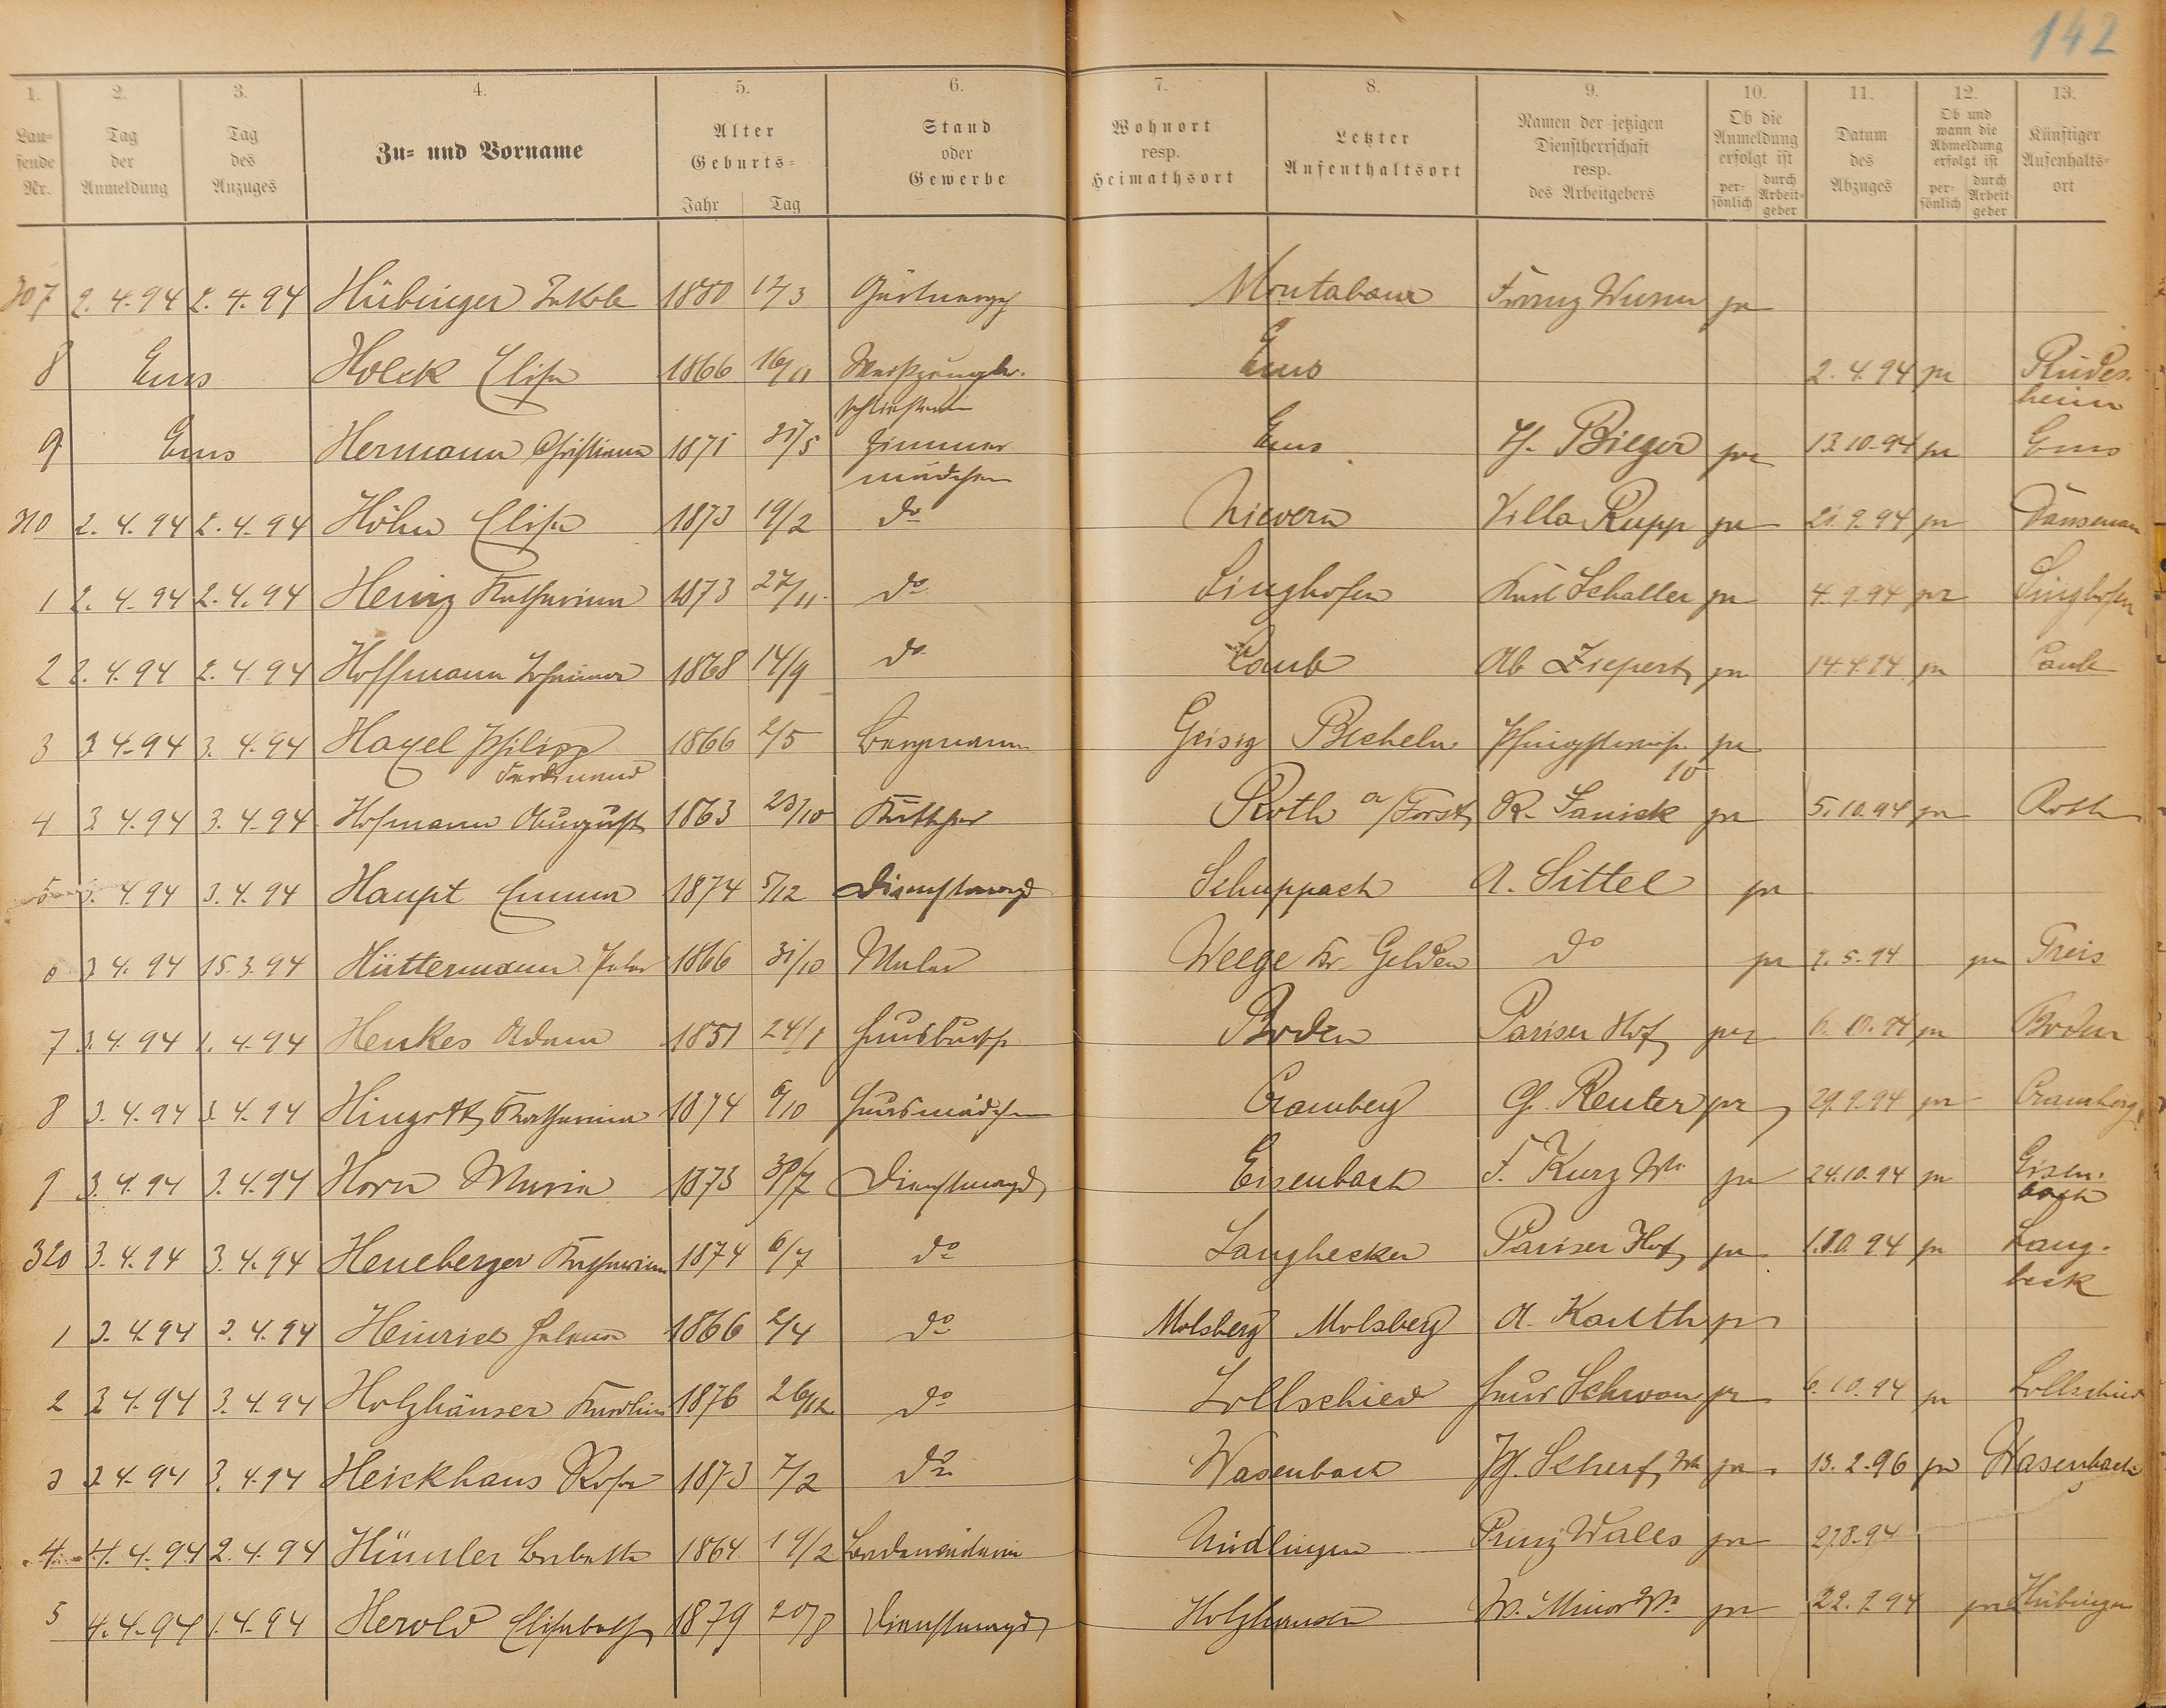 142
1. 2. 3. 4. 5. 6. 7. 8. 9. 10. 11. 12. 13.
Laufende Nr. Tag der Anmeldung Tag des Anzuges Zu- und Vorname Alter Geburts- Jahr Tag Stand oder Gewerbe Wohnort resp. Heimathsort Letzter Aufenthaltsort Namen der jetzigen Dienstherrschaft resp. des Arbeitgebers Ob die Anmeldung erfolgt ist persönlich durch Arbeitgeber Datum des Abzuges Ob und wann die Abmeldung erfolgt ist persönlich durch Arbeitgeber Künftiger Aufenthaltsort
307 2.4.94 2.4.94 Hübinger Jakob 1880 12/3 Montabaur Franz Wurm pr
8 Ems Holck Elise 1866 16/11 Ems 2.4.94 pr Rüdes-
heim
9 Ems Hermann Christiane 1871 Zimmer Ems H. Bieger pr 13.10.94 pr Ems
mädchen
310 2.4.94 2.4.94 Höhn Elise 1873 19/2 do Nievern Villa Rupp pr 21.9.94 pr
1 2.4.94 2.4.94 Heinz Katharina 1873 27/11 do Singhofen Karl Schaller pr 4.9.94 pr Singhofen
2 2.4.94 2.4.94 Hoffmann Johanna 1868 14/9 do Caub Ab Ziepert pr 14.4.94 pr Caub
3 3.4.94 3.4.94 Hagel Philipp 1866 2/5 Bergmann Geisig Becheln pr
Ferdinand 10
4 3.4.94 3.4.94 Hofmann August 1863 23/10 Kutscher Roth a/Forst R. Sanick pr 5.10.94 pr Roth
5 3.4.94 3.4.94 Haupt Emma 1874 5/12 Dienstmagd Schuppach A. Sittel pr
6 3.4.94 15.3.94 Hüttermann Peter 1866 31/10 Maler Weege Kr. Gelden do pr 9.5.94 pr Treis
7 3.4.94 1.4.94 Henkes Adam 1851 24/1 Hausbursch Boden Pariser Hof pr 6.10.94 pr Boden
8 3.4.94 3.4.94 Hingott Katharina 1874 6/10 Hausmädchen Cramberg G. Reuter pr 29.9.94 pr Cramberg
9 3.4.94 3.4.94 Horn Maria 1873 30/7 Dienstmagd Eisenbach F. Kurz Ww. pr 24.10.94 pr Eisen-
bach
320 3.4.94 3.4.94 Heneberger Katharina 1874 6/7 do Langhecken Pariser Hof pr 1.10.94 pr Lang-
heck
1 3.4.94 3.4.94 Heinrich Helena 1866 2/4 do Molsberg Molsberg A. Kauth pr
2 3.4.94 3.4.94 Holzhäuser Karolin 1876 26/12 do Lollschied Haus Schwan pr 6.10.94 pr Lollschied
3 3.4.94 3.4.94 Heickhaus Rosa 1873 7/2 do Wasenbach Scherf Ww pr 13.2.96 pr Wasenbach
4 4.4.94 2.4.94 Hümler Babette 1864 19/2 Badewärterin Nüdlingen Prinz Wales pr 27.8.94
5 4.4.94 1.4.94 Herold Elisabeth 1879 20/8 Dienstmagd Holzhausen W. Minor Ww. pr 22.9.94 pr Hübingen